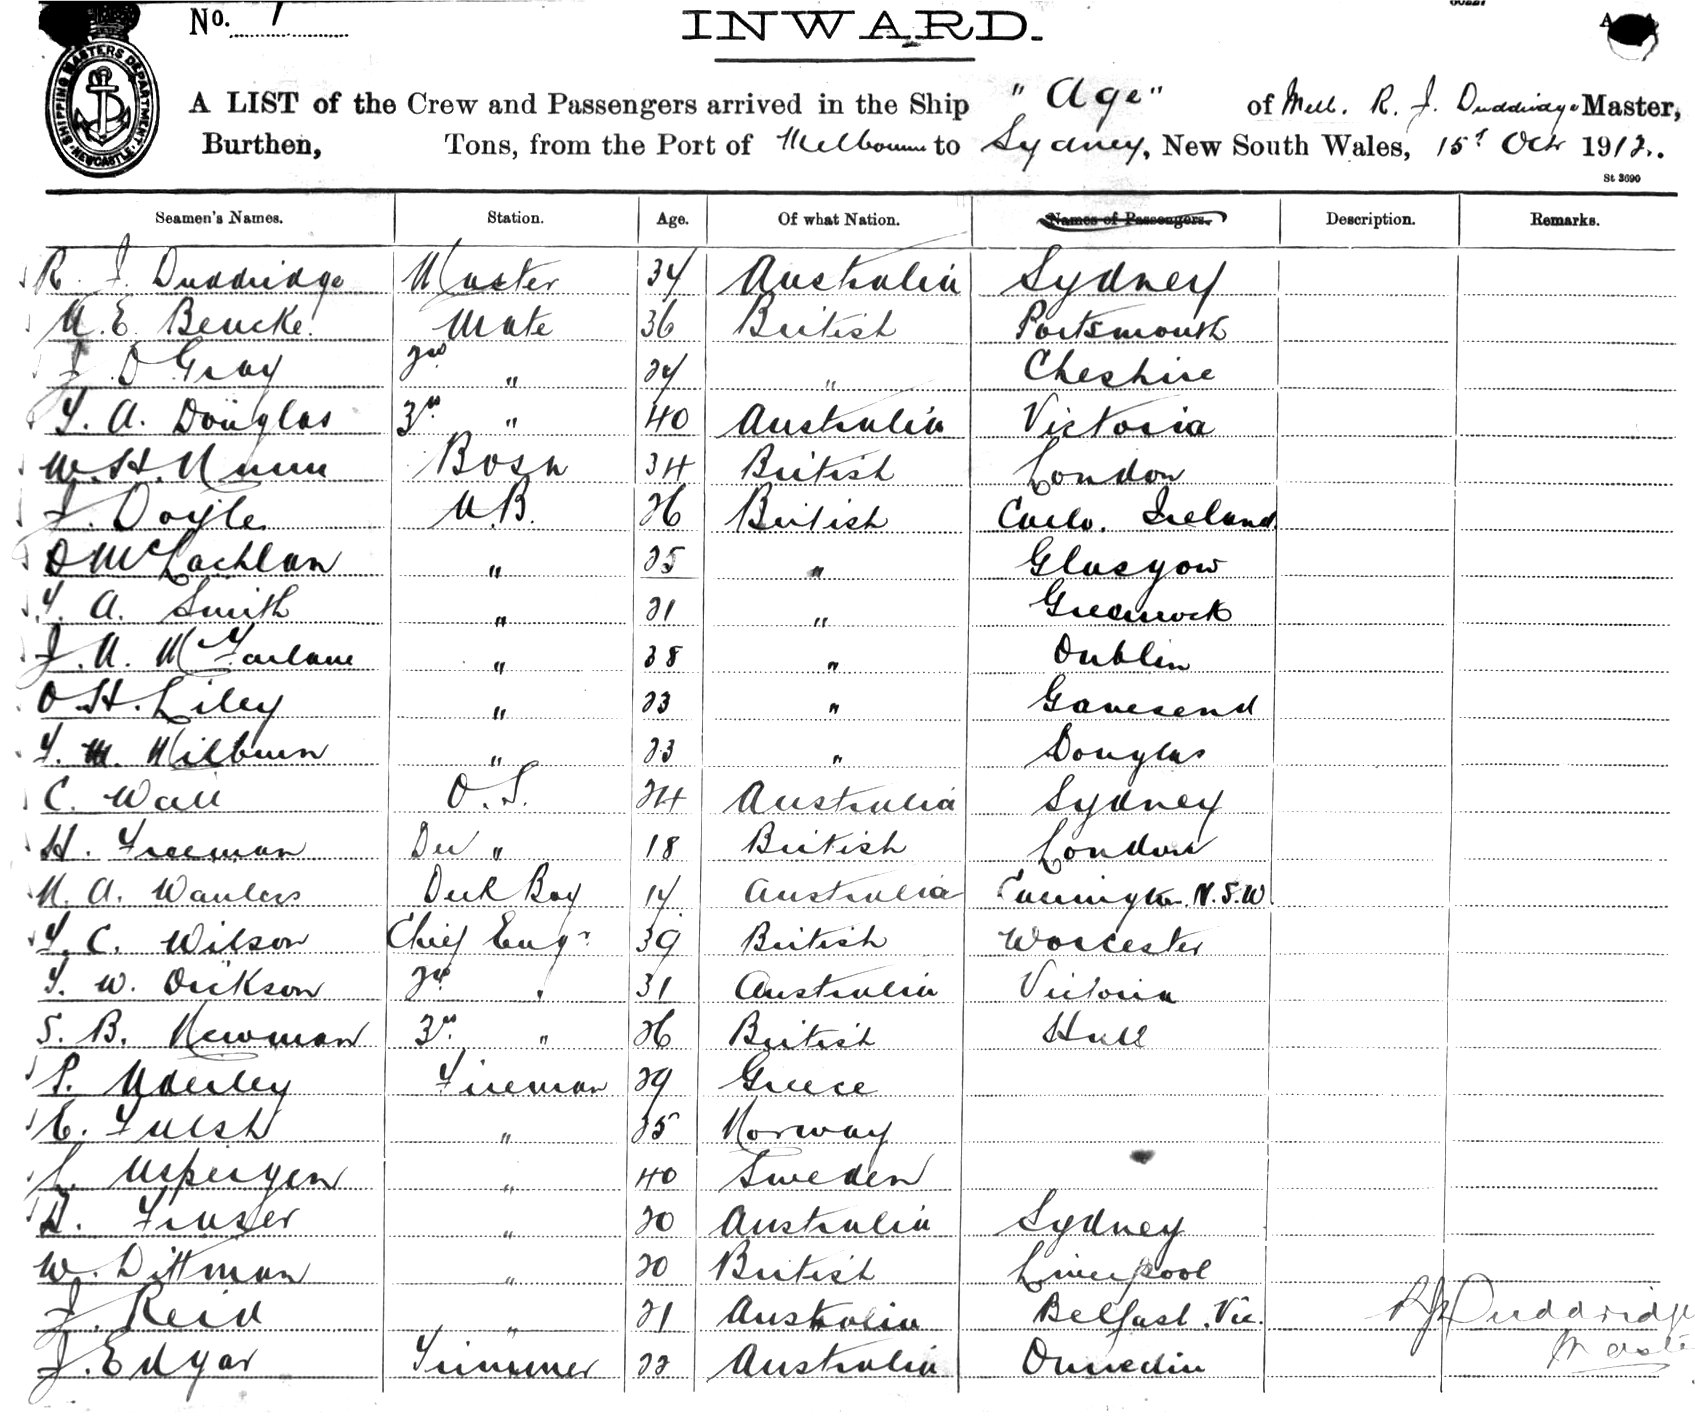 No. 1
INWARD.
SHIPPING MASTERS DEPARTMENT NEWCASTLE
A LIST of the Crew and Passengers arrived in the Ship "Age" of Mell. R. J. Duddridge Master,
Burthen, Tons, from the Port of Melbourne to Sydney, New South Wales, 15t Octr 1912.
St 3690
Seamen's Names. Station. Age. Of what Nation. Names of Passengers. Description. Remarks.
R. J. Duddridge Master 34 Australia Sydney
E. Bencke Mate 36 British Portsmouth
J. D Gray 2nd " 24 " Cheshire
T. A. Douglas 3rd " 40 Australia Victoria
W. H. Nunn Bosn 34 British London
J. Doyle A.B. 26 British Carlo. Ireland
D McLachlan " 25 " Glasgow
T. A. Smith " 21 " Greenock
J. A. McFarlane " 38 " Dublin
O. H. Liley " 23 " Gavesend
T. M. Milburn " 23 " Douglas
C. Wall O.S. 24 Australia Sydney
H. Freeman " 18 British London
A. Deck Boy 14 Australia N.S.W.
T. C. Wilson Chief Engr 39 British Worcester
T. W. Dickson 2nd " 31 Australia Victoria
S. B. Newman 3rd " 26 British Hull
P. Fireman 29 Greece
E. " 35 Norway
L. Aspergen " 40 Sweden
D. Fraser " 20 Australia Sydney
W. Dittman " 20 British Liverpool
J. Reid " 21 Australia Belfast. Vic.
J. Edgar Trimmer 22 Australia Dunedin
R J Duddridge
Master